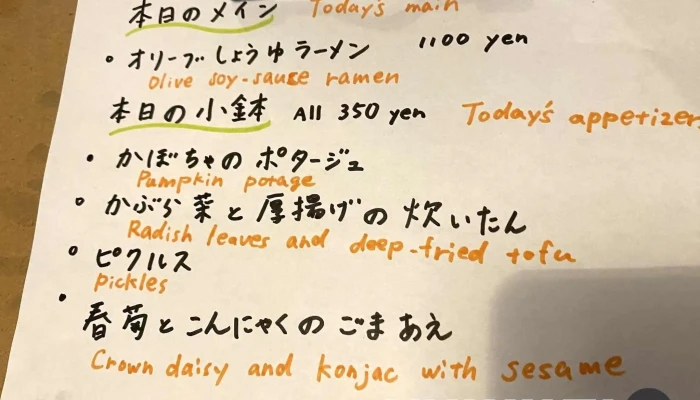 本日のメイン Today's main
・オリーブしょうゆラーメン 1100 yen
Olive soy-sauce ramen
本日の小鉢 All 350 yen Today's appetizer
・かぼちゃのポタージュ
Pumpkin potage
・かぶら菜と厚揚げの炊いたん
Radish leaves and deep-fried tofu
・ピクルス
pickles
・春菊とこんにゃくのごまあえ
Crown daisy and konjac with sesame